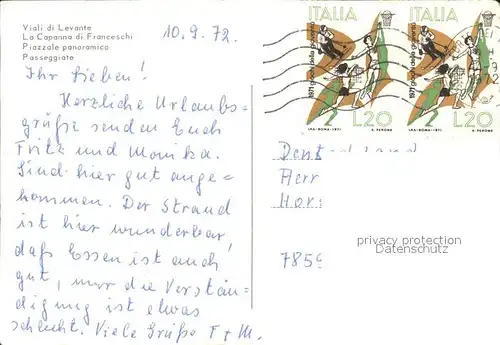 Viali di Levante
La Capanna di Franceschi
Piazzale panoramico
Passeggiate
10.9.72.
Ihr Lieben!
Herzliche Urlaubs-
grüße senden Euch
Fritz und Monika.
Sind hier gut ange=
kommen. Der Strand
ist hier wunderbar,
daß Essen ist auch
gut, nur die Verstän-
digung ist etwas
schlecht. Viele Grüße F + M.
ITALIA
1971 giochi della gioventù
L.20
I.P.S.-ROMA-1971 E. PERONE
ITALIA
1971 giochi della gioventù
L.20
I.P.S.-ROMA-1971 E. PERONE
Deutschland
Herr
Hor
785
privacy protection
Datenschutz